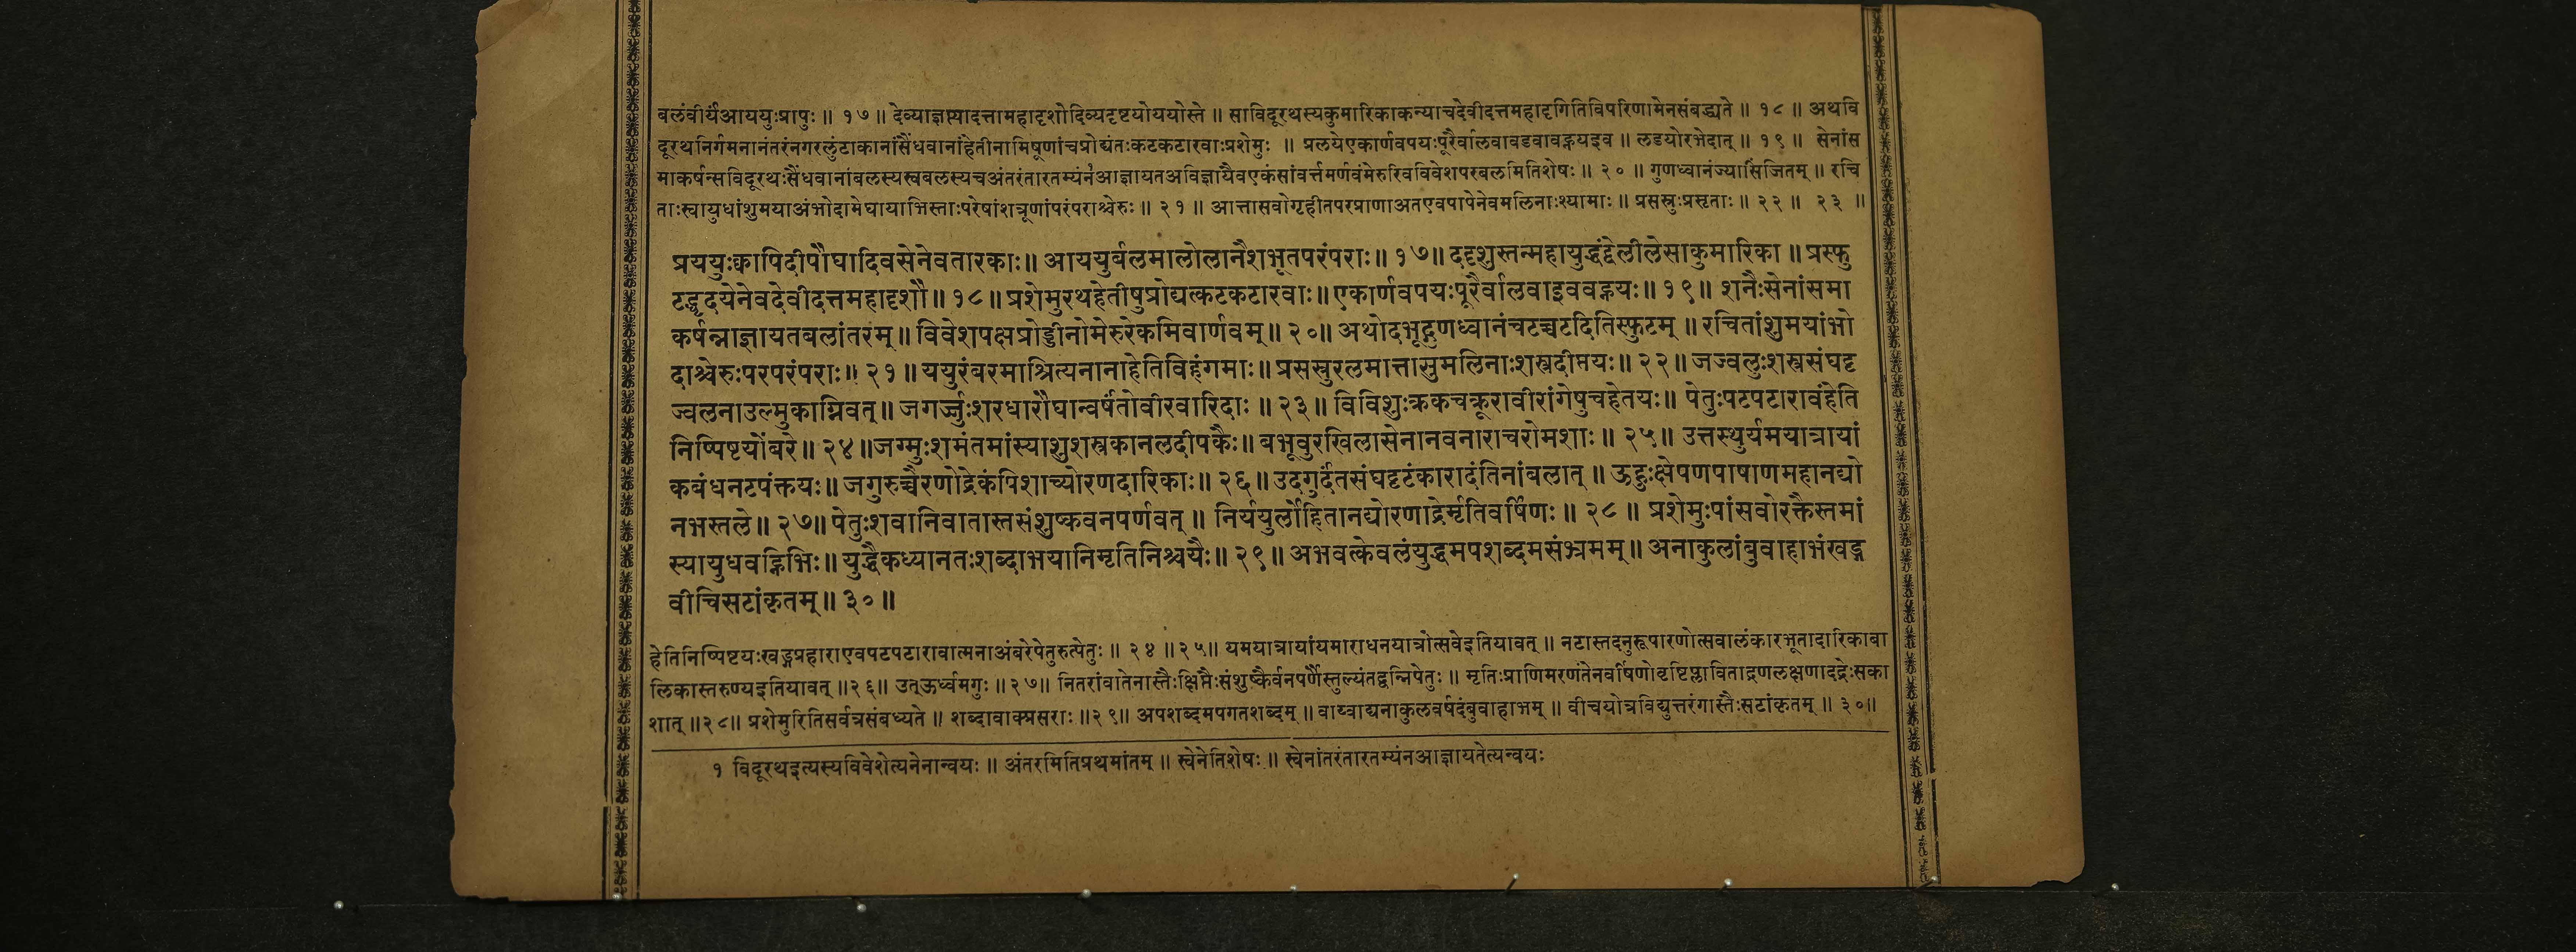 बलंवीर्यंआययुःप्रापुः ॥ १७ ॥ देव्याज्ञाप्यादत्तामहादृशोदिव्यदृष्टयोययोस्ते ॥ साविदूरथस्यकुमारिकाकन्याचदेवीदत्तमहादृगितिविपरिणामेनसंबद्ध्यते ॥ १८ ॥ अथवि
दूरथनिर्गमनानंतरंनगरलुंटाकानांसैंधवानांहेतीनामिषूणांचप्रोद्यंतःकटकटारवाःप्रशेमुः ॥ प्रलयेएकार्णवपयःपूरैर्वालवावडवावह्नयइव ॥ लडयोरभेदात् ॥ १९ ॥ सेनांस
माकर्षन्सविदूरथःसैंधवानांबलस्यस्वबलस्यचअंतरंतारतम्यंन१आज्ञायतअविज्ञायैवएकंसांवर्त्तमर्णवंमेरुरिवविवेशपरबलमितिशेषः ॥ २० ॥ गुणध्वानंज्यासिंजितम् ॥ रचि
ताःस्वायुधांशुमयाअंभोदामेघायाभिस्ताःपरेषांशत्रूणांपरंपराश्चेरुः ॥ २१ ॥ आत्तासवोगृहीतपरप्राणाअतएवपापेनेवमलिनाःश्यामाः ॥ प्रसस्रुःप्रसृताः ॥ २२ ॥ २३ ॥
प्रययुःक्वापिदीपौघादिवसेनेवतारकाः॥ आययुर्बलमालोलानैशभूतपरंपराः॥ १७॥ ददृशुस्तन्महायुद्धंद्वेलीलेसाकुमारिका ॥ प्रस्फु
टद्धृदयेनेवदेवीदत्तमहादृशौ॥ १८॥ प्रशेमुरथहेतीषुप्रोद्यत्कटकटारवाः॥ एकार्णवपयःपूरैर्वालवाइववह्नयः॥ १९॥ शनैःसेनांसमा
कर्षन्नाज्ञायतबलांतरम् ॥ विवेशपक्षप्रोड्डीनोमेरुरेकमिवार्णवम्॥ २०॥ अथोदभूद्गुणध्वानंचटच्चटदितिस्फुटम् ॥ रचितांशुमयांभो
दाश्चेरुःपरपरंपराः॥ २१॥ ययुरंबरमाश्रित्यनानाहेतिविहंगमाः॥ प्रसस्रुरलमात्तासुमलिनाःशस्त्रदीप्तयः॥ २२॥ जज्वलुःशस्त्रसंघट्ट
ज्वलनाउल्मुकाग्निवत्॥ जगर्ज्जुःशरधारौघान्वर्षंतोवीरवारिदाः ॥ २३॥ विविशुःक्रकचक्रूरावीरांगेषुचहेतयः॥ पेतुःपटपटारावंहेति
निष्पिष्टयोंबरे॥ २४॥जग्मुःशमंतमांस्याशुशस्त्रकानलदीपकैः॥ बभूवुरखिलासेनानवनाराचरोमशाः॥ २५॥ उत्तस्थुर्यमयात्रायां
कबंधनटपंक्तयः॥ जगुरुच्चैरणोद्रेकंपिशाच्योरणदारिकाः॥ २६॥ उदगुर्दंतसंघट्टटंकारादंतिनांबलात् ॥ ऊहुःक्षेपणपाषाणमहानद्यो
नभस्तले॥ २७॥ पेतुःशवानिवातास्तसंशुष्कवनपर्णवत् ॥ निर्ययुर्लोहितानद्योरणाद्रेर्मृतिवर्षिणः॥ २८॥ प्रशेमुःपांसवोरक्तैस्तमां
स्यायुधवह्निभिः॥ युद्धैकध्यानतःशब्दाभयानिमृतिनिश्चयैः॥ २९॥ अभवत्केवलंयुद्धमपशब्दमसंभ्रमम्॥ अनाकुलांबुवाहाभंखड्ग
वीचिसटांकृतम्॥ ३०॥
हेतिनिष्पिष्टयःखड्गप्रहाराएवपटपटारावात्मनाअंबरेपेतुरुत्पेतुः ॥ २४ ॥२५॥ यमयात्रायांयमाराधनयात्रोत्सवेइतियावत् ॥ नटास्तदनुरूपारणोत्सवालंकारभूतादारिकाबा
लिकास्तरुण्यइतियावत् ॥२६॥ उत्ऊर्ध्वमगुः ॥२७॥ नितरांवातेनास्तैःक्षिप्तैःसंशुष्कैर्वनपर्णैस्तुल्यंतद्वन्निपेतुः ॥ मृतिःप्राणिमरणंतेनवर्षिणोवृष्टिप्लाविताद्रणलक्षणादद्रेःसका
शात् ॥२८॥ प्रशेमुरितिसर्वत्रसंबध्यते ॥ शब्दावाक्प्रसराः ॥२९॥ अपशब्दमपगतशब्दम् ॥ वाय्वाद्यनाकुलवर्षदंबुवाहाभम् ॥ वीचयोत्रविद्युत्तरंगास्तैःसटांकृतम् ॥ ३०॥
१ विदूरथइत्यस्यविवेशेत्यनेनान्वयः ॥ अंतरमितिप्रथमांतम् ॥ स्वेनेतिशेषः ॥ स्वेनांतरंतारतम्यंनआज्ञायतेत्यन्वयः